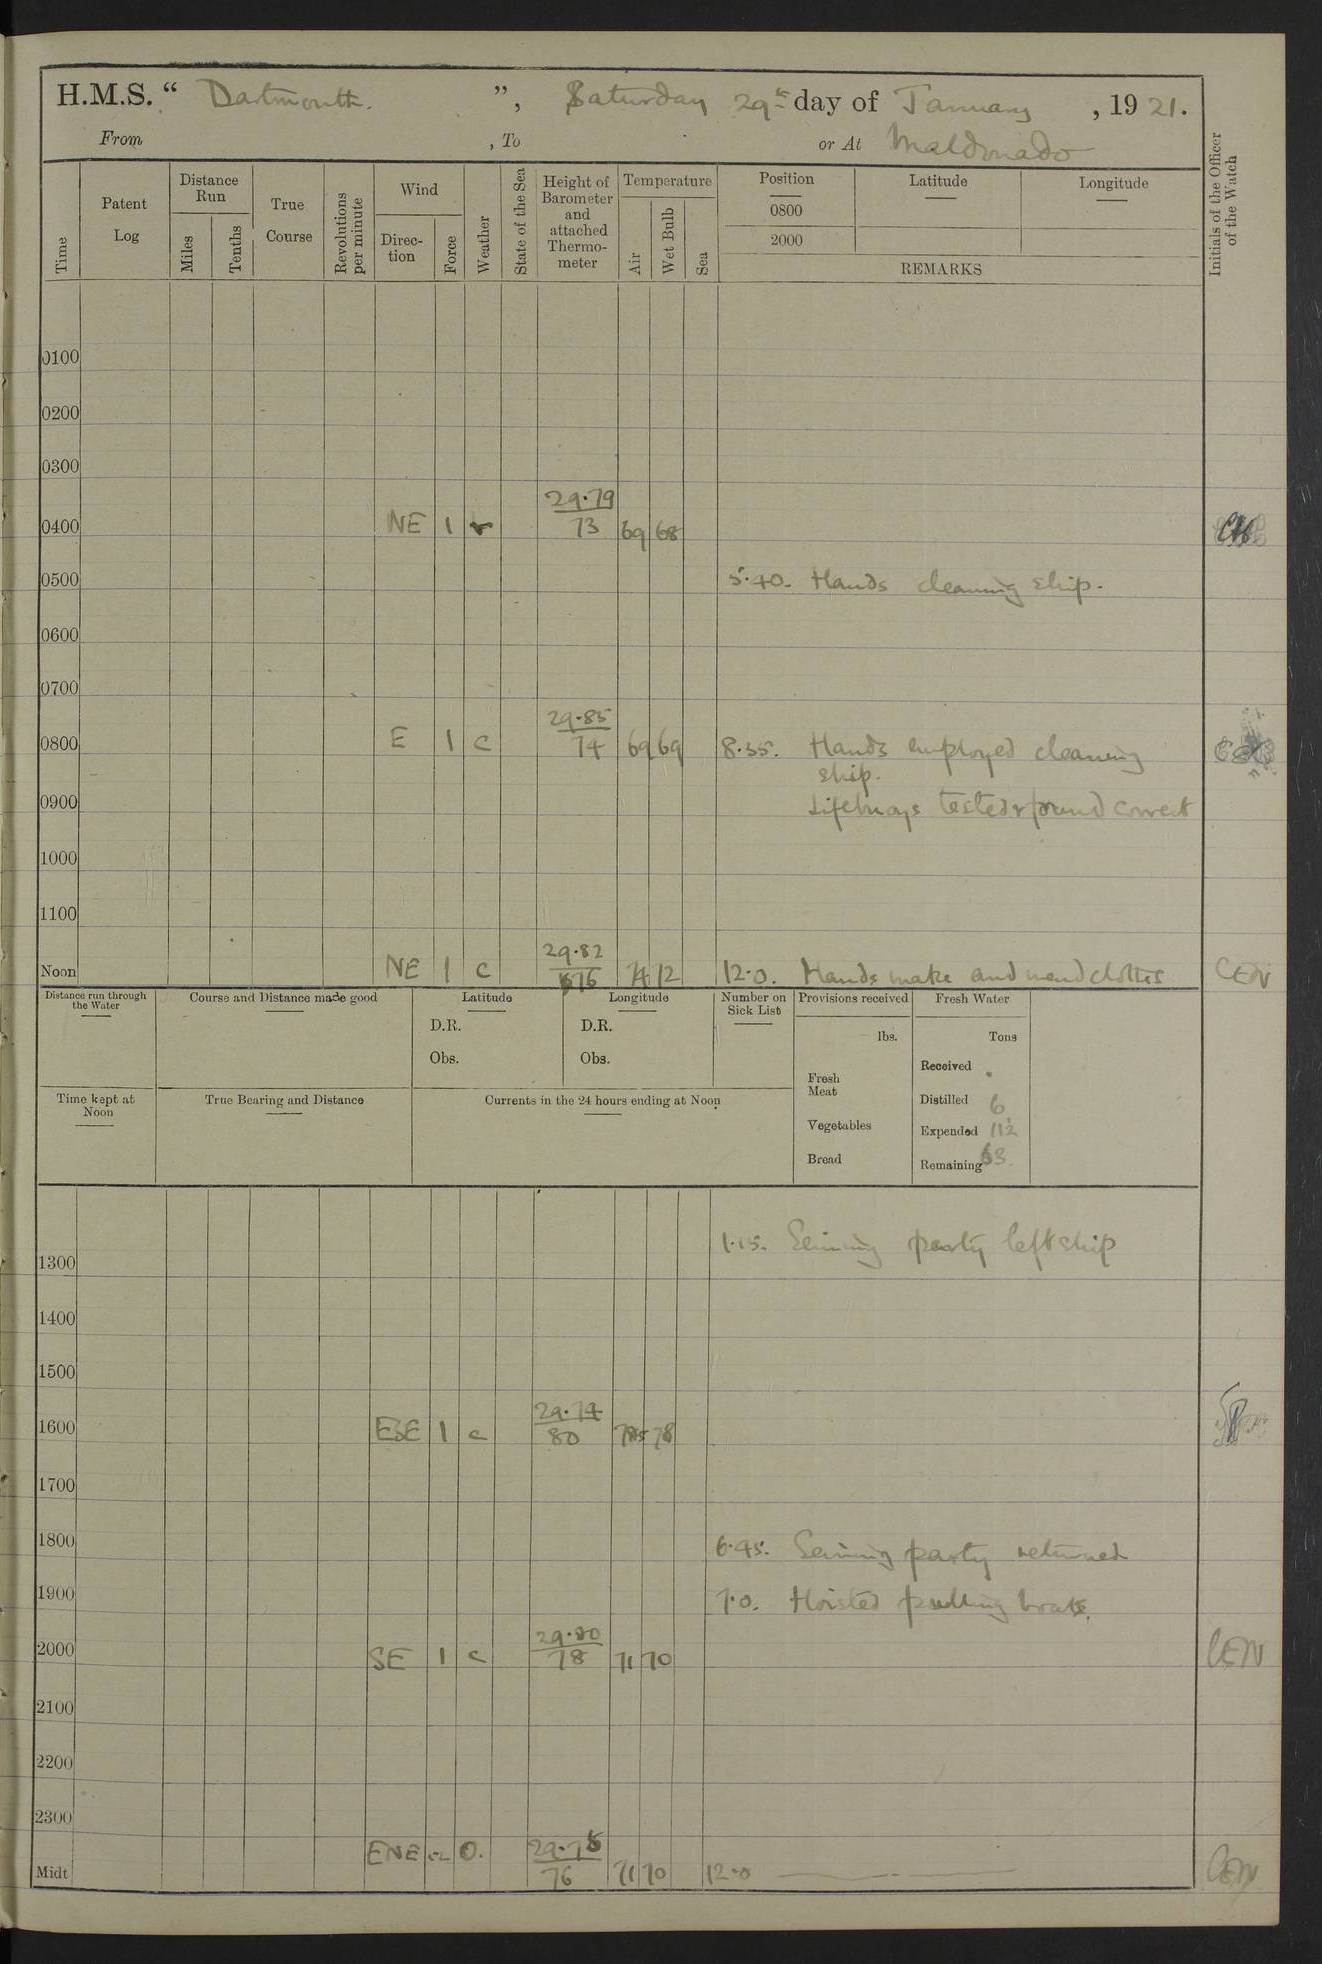 H.M.S. “ Dartmouth. ”, Saturday 29th day of January, 1921.
From , To or At Maldonado
Time
Patent Log
Distance Run
Miles
Tenths
True Course
Revolutions per minute
Wind
Direc-tion
Force
Weather
State of the Sea
Height of Barometer and attached Thermo-meter
Temperature
Air
Wet Bulb
Sea
Position Latitude Longitude
0800
2000
REMARKS
Initials of the Officer of the Watch
0100
0200
0300
29.79
0400 NE 1 73 69 68
0500 5.40. Hands cleaning ship.
0600
0700
29.85
0800 E 1 c 74 69 69 8.35. Hands employed cleaning
ship.
0900 Lifebuoys tested & found correct
1000
1100
29.82
Noon NE 1 c 76 74 72 12.0. Hands make and mend clothes CEN
Distance run through the Water
Course and Distance made good
Latitude
D.R.
Obs.
Longitude
D.R.
Obs.
Number on Sick List
Provisions received
lbs.
Fresh Meat
Vegetables
Bread
Fresh Water
Tons
Received
Distilled 6
Expended 11½
Remaining 63
Time kept at Noon
True Bearing and Distance
Currents in the 24 hours ending at Noon
1.15. Seining party left ship
1300
1400
1500
29.74
1600 ESE 1 c 80 78
1700
1800 6.45. Seining party returned
1900 7.0. Hoisted pulling boats.
29.80
2000 SE 1 c 78 71 70 CEN
2100
2200
2300
29.78
Midt ENE 1-2 O. 76 71 70 12.0 CEN